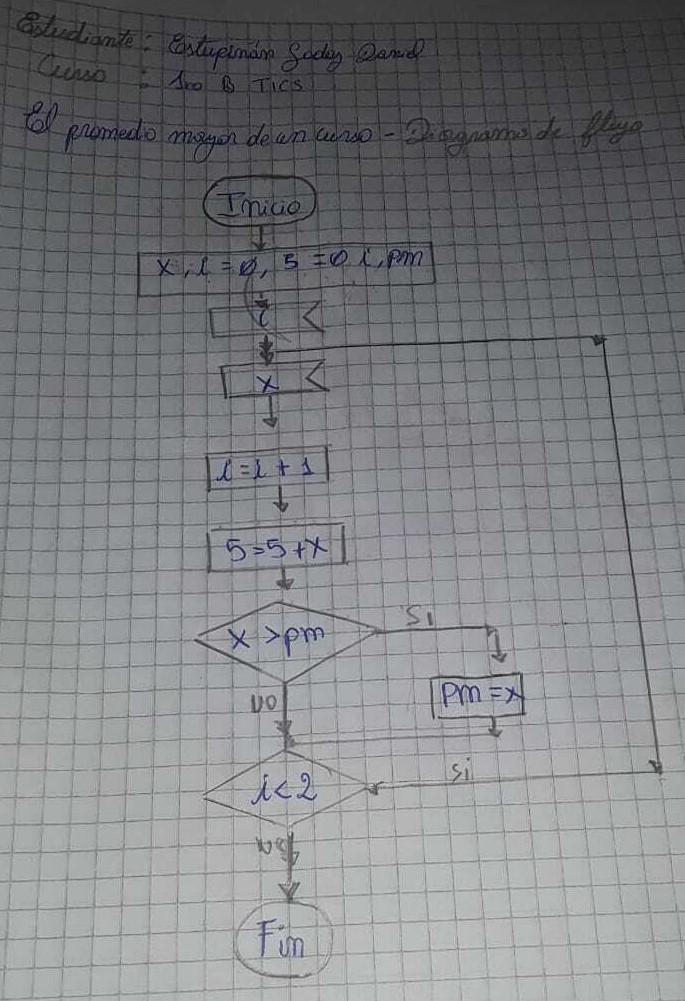 Estudiante: Estupinán Godoy Daniel
Curso : 1ro B TICS
El promedio mayor de un curso - Diagrama de flujo
Inicio
x, i = 0, 5 = 0 i, pm
i
x
i = i + 1
5 = 5 + x
x > pm
Si
NO
pm = x
i < 2
Si
NO
Fin